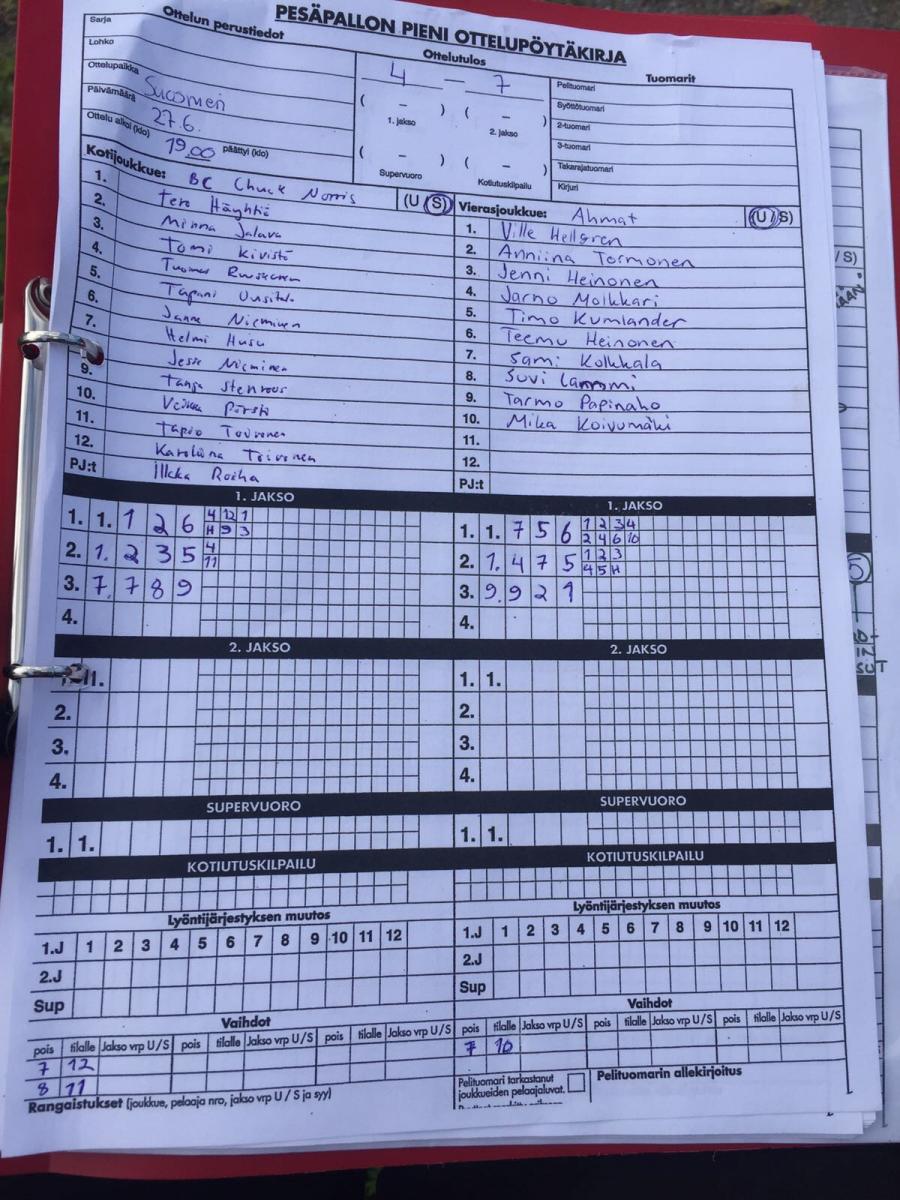 PESÄPALLON PIENI OTTELUPÖYTÄKIRJA
Ottelun perustiedot
Sarja
Lohko
Ottelupaikka Suomen
Päivämäärä 27.6.
Ottelu alkoi (klo) 19.00 päättyi (klo)
Ottelutulos
4 – 7
( – ) ( – )
1. jakso 2. jakso
( – ) ( – )
Supervuoro Kotiutuskilpailu
Tuomarit
Pelituomari
Syöttötuomari
2-tuomari
3-tuomari
Takarajatuomari
Kirjuri
Kotijoukkue: BC Chuck Norris (U/S)
1. Tero Häyhtiö
2. Minna Jalava
3. Tomi Kivistö
4. Tuomas
5. Tapani Uusitalo
6. Janne Nieminen
7. Helmi Husu
Jesse Nieminen
9. Tanja Stenroos
10. Veikka
11. Tapio Toivonen
12. Karoliina Toivonen
PJ:t Ilkka Roiha
Vierasjoukkue: Ahmat (U/S)
1. Ville Hellgren
2. Anniina Tormonen
3. Jenni Heinonen
4. Jarno Moikkari
5. Timo Kumlander
6. Teemu Heinonen
7. Sami Kolkkala
8. Suvi Lammi
9. Tarmo Papinaho
10. Mika Koivumäki
11.
12.
PJ:t
1. JAKSO
1. 1. 1 2 6 4 12 1
H 9 3
2. 1. 2 3 5 4
11
3. 7. 7 8 9
4.
1. JAKSO
1. 1. 7 5 6 1 2 3 4
2 4 6 10
2. 1. 4 7 5 1 2 3
4 5 H
3. 9. 9 2 1
4.
2. JAKSO
1. 1.
2.
3.
4.
2. JAKSO
1. 1.
2.
3.
4.
SUPERVUORO
1. 1.
SUPERVUORO
1. 1.
KOTIUTUSKILPAILU
KOTIUTUSKILPAILU
Lyöntijärjestyksen muutos
1.J 1 2 3 4 5 6 7 8 9 10 11 12
2.J
Sup
Lyöntijärjestyksen muutos
1.J 1 2 3 4 5 6 7 8 9 10 11 12
2.J
Sup
Vaihdot
pois tilalle Jakso vrp U/S pois tilalle Jakso vrp U/S pois tilalle Jakso vrp U/S
7 12
8 11
Vaihdot
pois tilalle Jakso vrp U/S pois tilalle Jakso vrp U/S pois tilalle Jakso vrp U/S
7 10
Rangaistukset (joukkue, pelaaja nro, jakso vrp U/S ja syy)
Pelituomari tarkastanut
joukkueiden pelaajaluvat.
Pelituomarin allekirjoitus